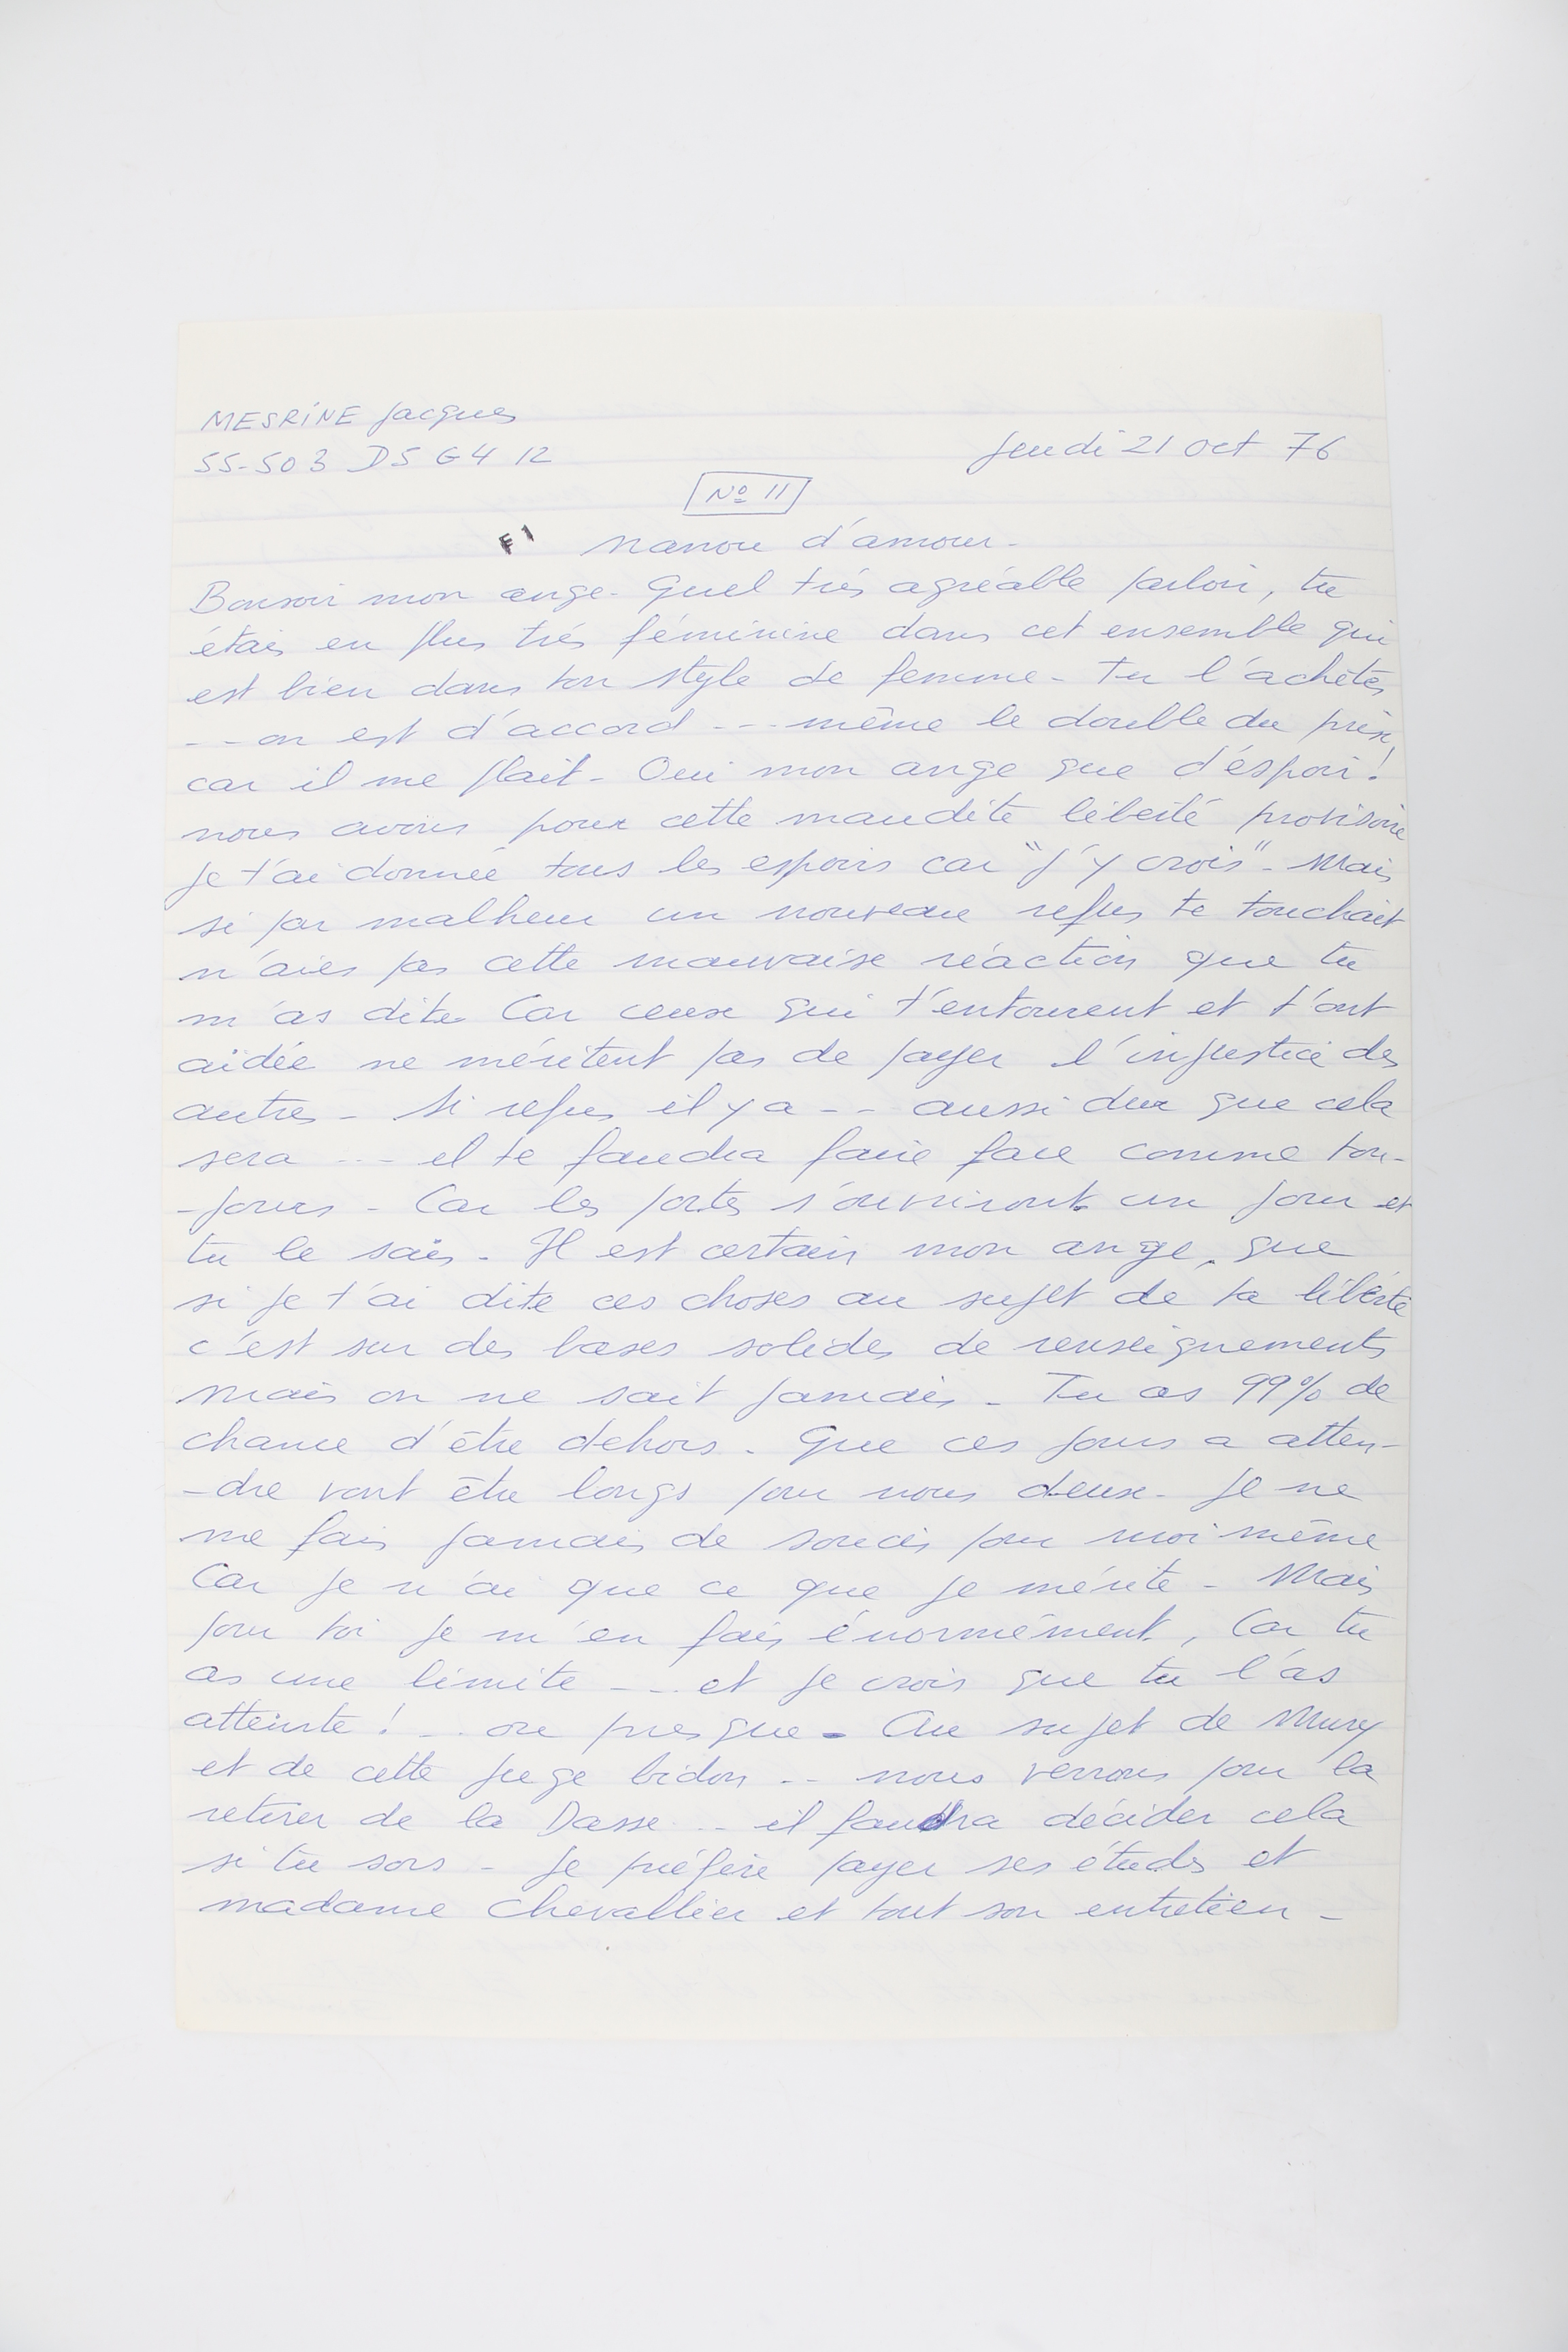 MESRINE Jacques
55-503 DS G4 12
Jeudi 21 Oct 76
No 11
F1
Nanou d'amour -
Bonsoir mon ange - Quel très agréable parloir, tu
étais en plus très féminine dans cet ensemble qui
est bien dans ton style de femme - Tu l'achètes
-- on est d'accord --- même le double du prix
car il me plait - Oui mon ange que d'éspoir!
nous avons pour cette maudite liberté provisoire
Je t'ai donnée tous les espoirs car "J'y crois" - Mais
si par malheur un nouveau refus te touchait
n'aies pas cette mauvaise réaction que tu
m'as dite Car ceux qui t'entourent et t'ont
aidée ne méritent pas de payer l'injustice des
autres - Si refus il y a -- aussi dur que cela
sera --- il te faudra faire face comme tou-
-jours - Car les portes s'ouvriront un jour et
tu le sais - Il est certain mon ange, que
si je t'ai dite ces choses au sujet de ta liberté
c'est sur des bases solides de renseignements
mais on ne sait jamais - Tu as 99% de
chance d'être dehors - Que ces jours a atten-
-dre vont être longs pour nous deux - Je ne
me fais jamais de soucis pour moi même
Car je n'ai que ce que je mérite - Mais
pour toi je m'en fais énormément, Car tu
as une limite --- et je crois que tu l'as
atteinte! -- ou presque - Au sujet de Mury
et de cette juge bidon -- nous verrons pour la
retirer de la Dasse -- il faudra décider cela
si tu sors - Je préfère payer ses études et
madame Chevallier et tout son entretien -